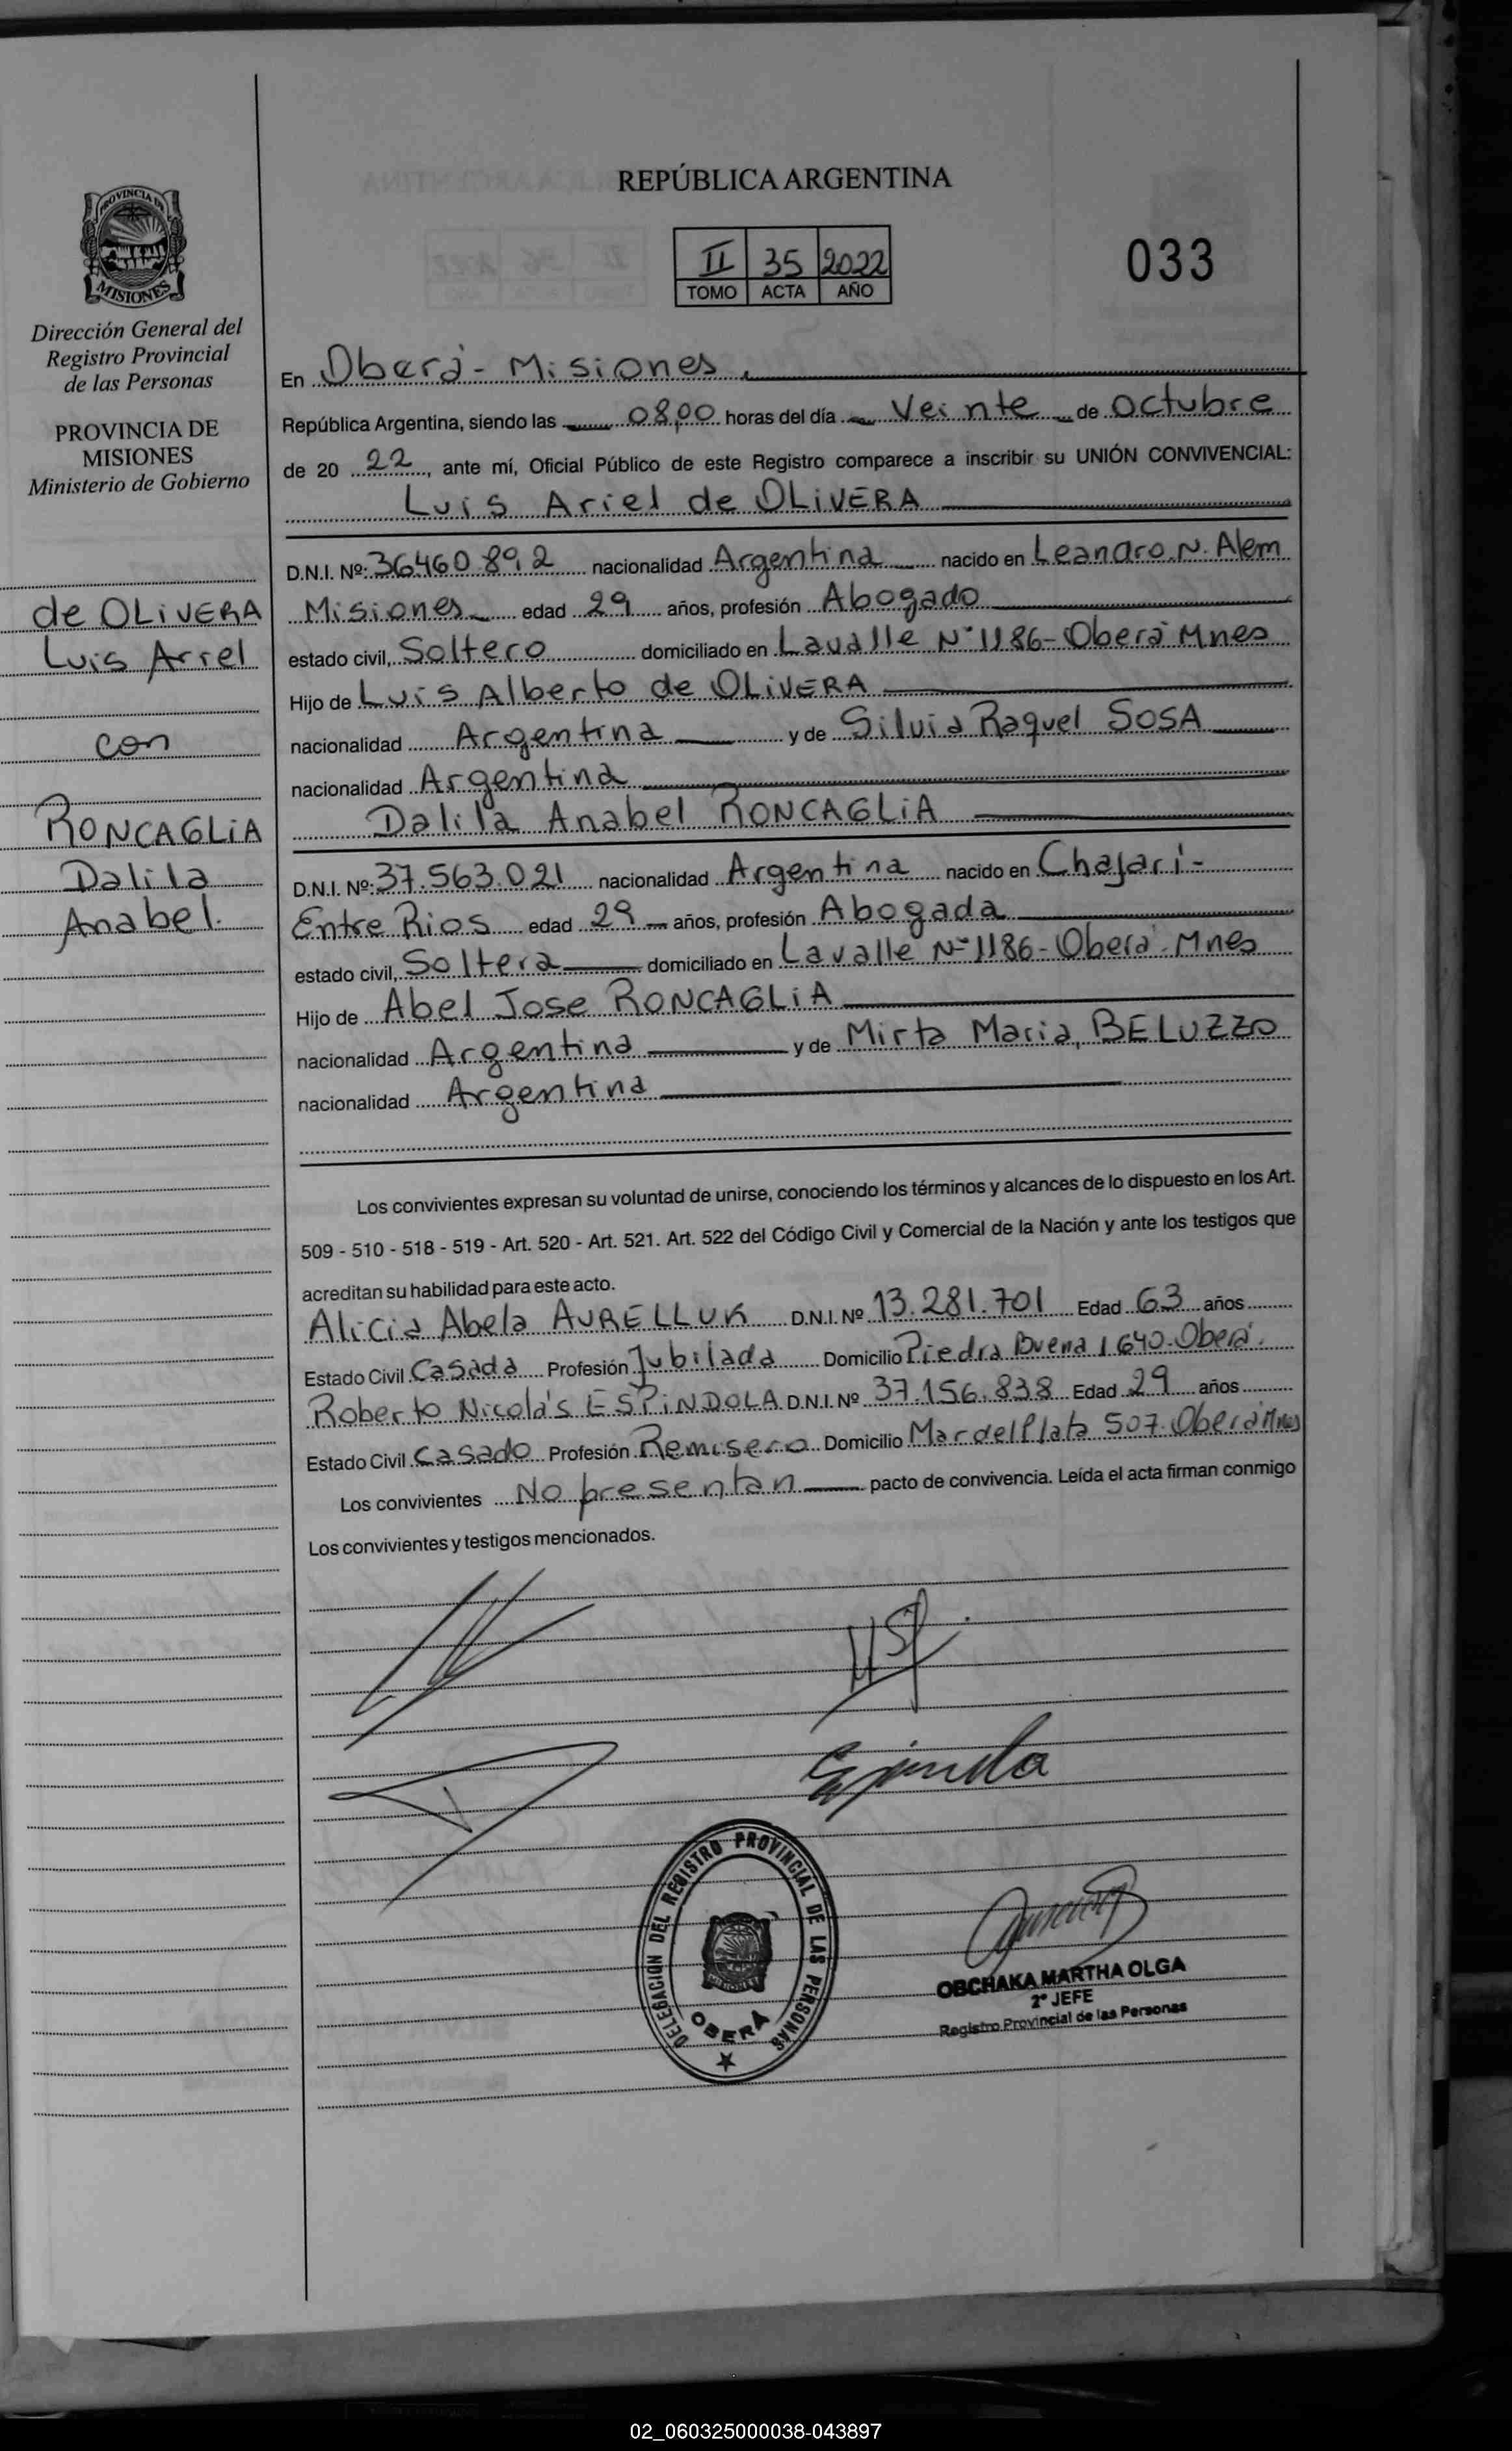 REPÚBLICA ARGENTINA
PROVINCIA DE
MISIONES
Dirección General del
Registro Provincial
de las Personas
PROVINCIA DE
MISIONES
Ministerio de Gobierno
II 35 2022
TOMO ACTA AÑO
033
de OLIVERA
Luis Ariel
con
RONCAGLIA
Dalila
Anabel.
En Oberá - Misiones
República Argentina, siendo las 08,00 horas del día Veinte de Octubre
de 20 22, ante mí, Oficial Público de este Registro comparece a inscribir su UNIÓN CONVIVENCIAL:
Luis Ariel de OLIVERA
D.N.I. Nº: 36.460.892 nacionalidad Argentina nacido en Leandro N. Alem
Misiones edad 29 años, profesión Abogado
estado civil, Soltero domiciliado en Lavalle Nº 1186 - Oberá Mnes
Hijo de Luis Alberto de OLIVERA
nacionalidad Argentina y de Silvia Raquel SOSA
nacionalidad Argentina
Dalila Anabel RONCAGLIA
D.N.I. Nº: 37.563.021 nacionalidad Argentina nacido en Chajarí -
Entre Rios edad 29 años, profesión Abogada
estado civil, Soltera domiciliado en Lavalle Nº 1186 - Oberá - Mnes
Hijo de Abel Jose RONCAGLIA
nacionalidad Argentina y de Mirta Maria, BELUZZO
nacionalidad Argentina
Los convivientes expresan su voluntad de unirse, conociendo los términos y alcances de lo dispuesto en los Art.
509 - 510 - 518 - 519 - Art. 520 - Art. 521. Art. 522 del Código Civil y Comercial de la Nación y ante los testigos que
acreditan su habilidad para este acto.
Alicia Abela AURELLUK D.N.I. Nº 13.281.701 Edad 63 años
Estado Civil Casada Profesión Jubilada Domicilio Piedra Buena 1640 - Oberá.
Roberto Nicolás ESPINDOLA D.N.I. Nº 37.156.838 Edad 29 años
Estado Civil Casado Profesión Remisero Domicilio Mar del Plata 507. Oberá Mnes
Los convivientes No presentan pacto de convivencia. Leída el acta firman conmigo
Los convivientes y testigos mencionados.
DELEGACIÓN DEL REGISTRO PROVINCIAL DE LAS PERSONAS
OBERÁ
OBCHAKA MARTHA OLGA
2º JEFE
Registro Provincial de las Personas
02_060325000038-043897